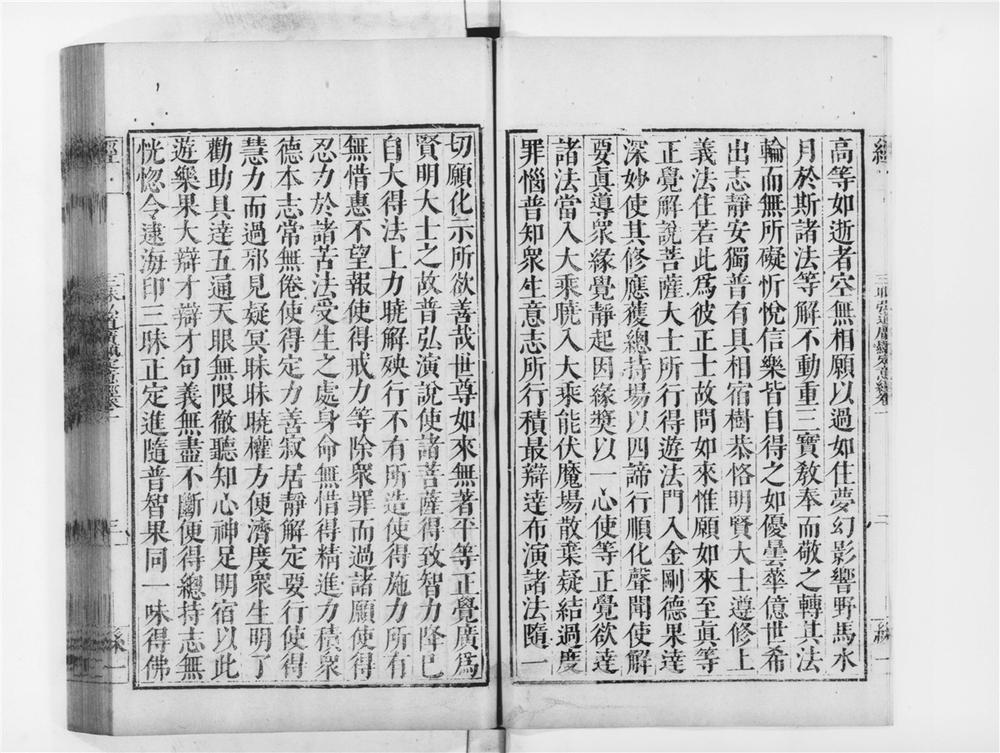 高等如逝者空無相願以過如住夢幻影響野馬水
月於斯諸法等解不動重三寶敎奉而敬之轉其法
輪而無所礙忻悅信樂皆自得之如優曇華億世希
出志靜安獨普有具相宿樹恭恪明賢大士遵修上
義法住若此爲彼正士故問如來惟願如來至眞等
正覺解說菩薩大士所行得遊法門入金剛德果達
深妙使其修應蒦總持場以四諦行順化聲聞使解
要眞導衆緣覺靜起因緣奬以一心使等正覺欲達
諸法當入大乘曉入大乘能伏魔場散棄疑結過度
罪惱普知衆生意志所行積最辯達布演諸法隨一
切願化示所欲善哉世尊如來無著平等正覺廣爲
賢明大士之故普弘演說使諸菩薩得致智力降已
自大得法上力曉解殃行不有所造使得施力所有
無惜惠不望報使得戒力等除衆罪而過諸願使得
忍力於諸苦法受生之處身命無惜得精進力積衆
德本志常無倦使得定力善寂居靜解定要行使得
慧力而過邪見疑冥昧昧曉權方便濟度衆生明了
勸助具達五通天眼無限徹聽知心神足明宿以此
遊樂果大辯才辯才句義無盡不斷便得總持志無
恍惚令逮海印三昧正定進隨普智果同一味得佛